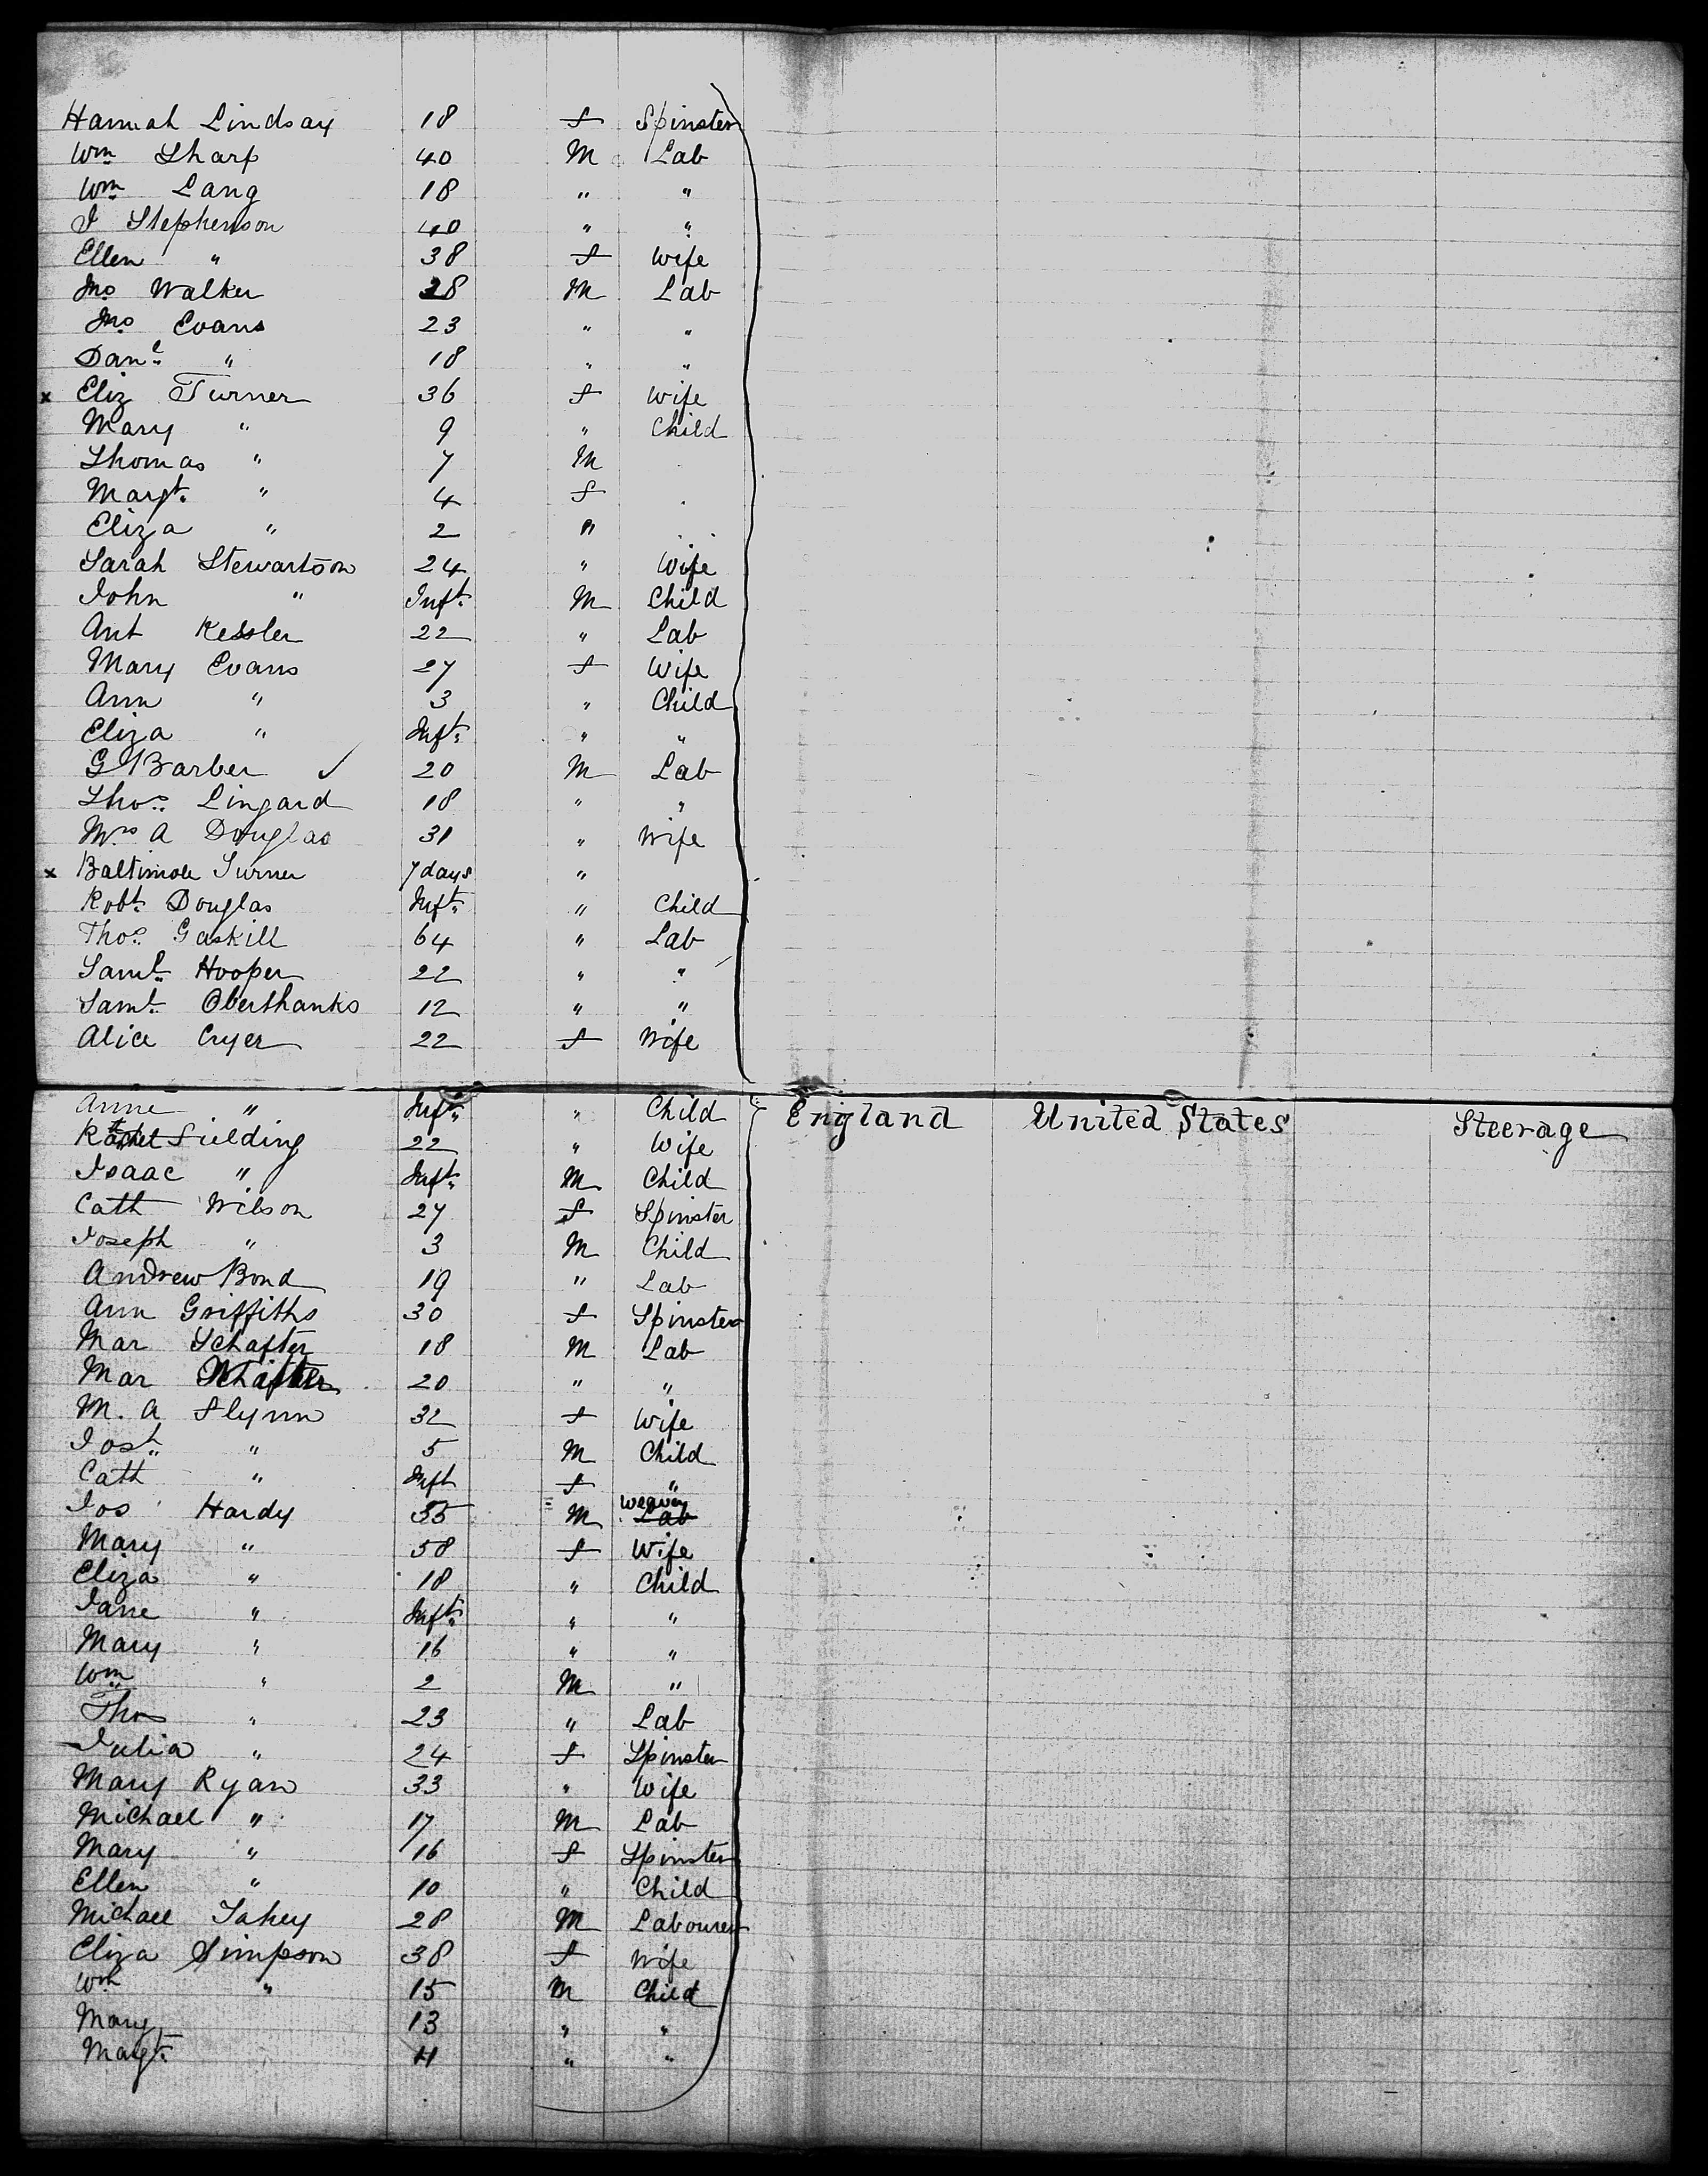 Hannah Lindsay 18 f Spinster
Wm Sharp 40 M Lab
Wm Lang 18 " "
J Stephenson 40 " "
Ellen " 38 f Wife
Jno Walker 28 M Lab
Jno Evans 23 " "
Danl " 18 " "
x Eliz Turner 36 f Wife
Mary " 9 " Child
Thomas " 7 M
Margt " 4 f
Eliza " 2 "
Sarah Stewartson 24 " Wife
John " Inft M Child
Ant Kessler 22 " Lab
Mary Evans 27 f Wife
Ann " 3 " Child
Eliza " Inft " "
G Barber ✓ 20 M Lab
Thos Lingard 18 " "
Mrs A Douglas 31 " Wife
x Baltimore Turner 7 days "
Robt Douglas Inft " Child
Thos Gaskill 64 " Lab
Saml Hooper 22 " "
Saml Obershanks 12 " "
Alice Cryer 22 f Wife
Anne " Inft " Child England United States Steerage
Fielding 22 " Wife
Isaac " Inft M Child
Cath Wilson 27 f Spinster
Joseph " 3 M Child
Andrew Bond 19 " Lab
Ann Griffiths 30 f Spinster
Mar Schafter 18 M Lab
Mar 20 " "
M. A Flynn 32 f Wife
Josh " 5 M Child
Cath " Inft f "
Jos Hardy 55 M Weaver Lab
Mary " 58 f Wife
Eliza " 18 " Child
Jane " Inft " "
Mary " 16 " "
Wm " 2 M "
Thos " 23 " Lab
Julia " 24 f Spinster
Mary Ryan 33 " Wife
Michael " 17 M Lab
Mary " 16 f Spinster
Ellen " 10 " Child
Michael Fahey 28 M Labourer
Eliza Simpson 38 f Wife
Wm " 15 M Child
Mary 13 " "
Margt 11 " "